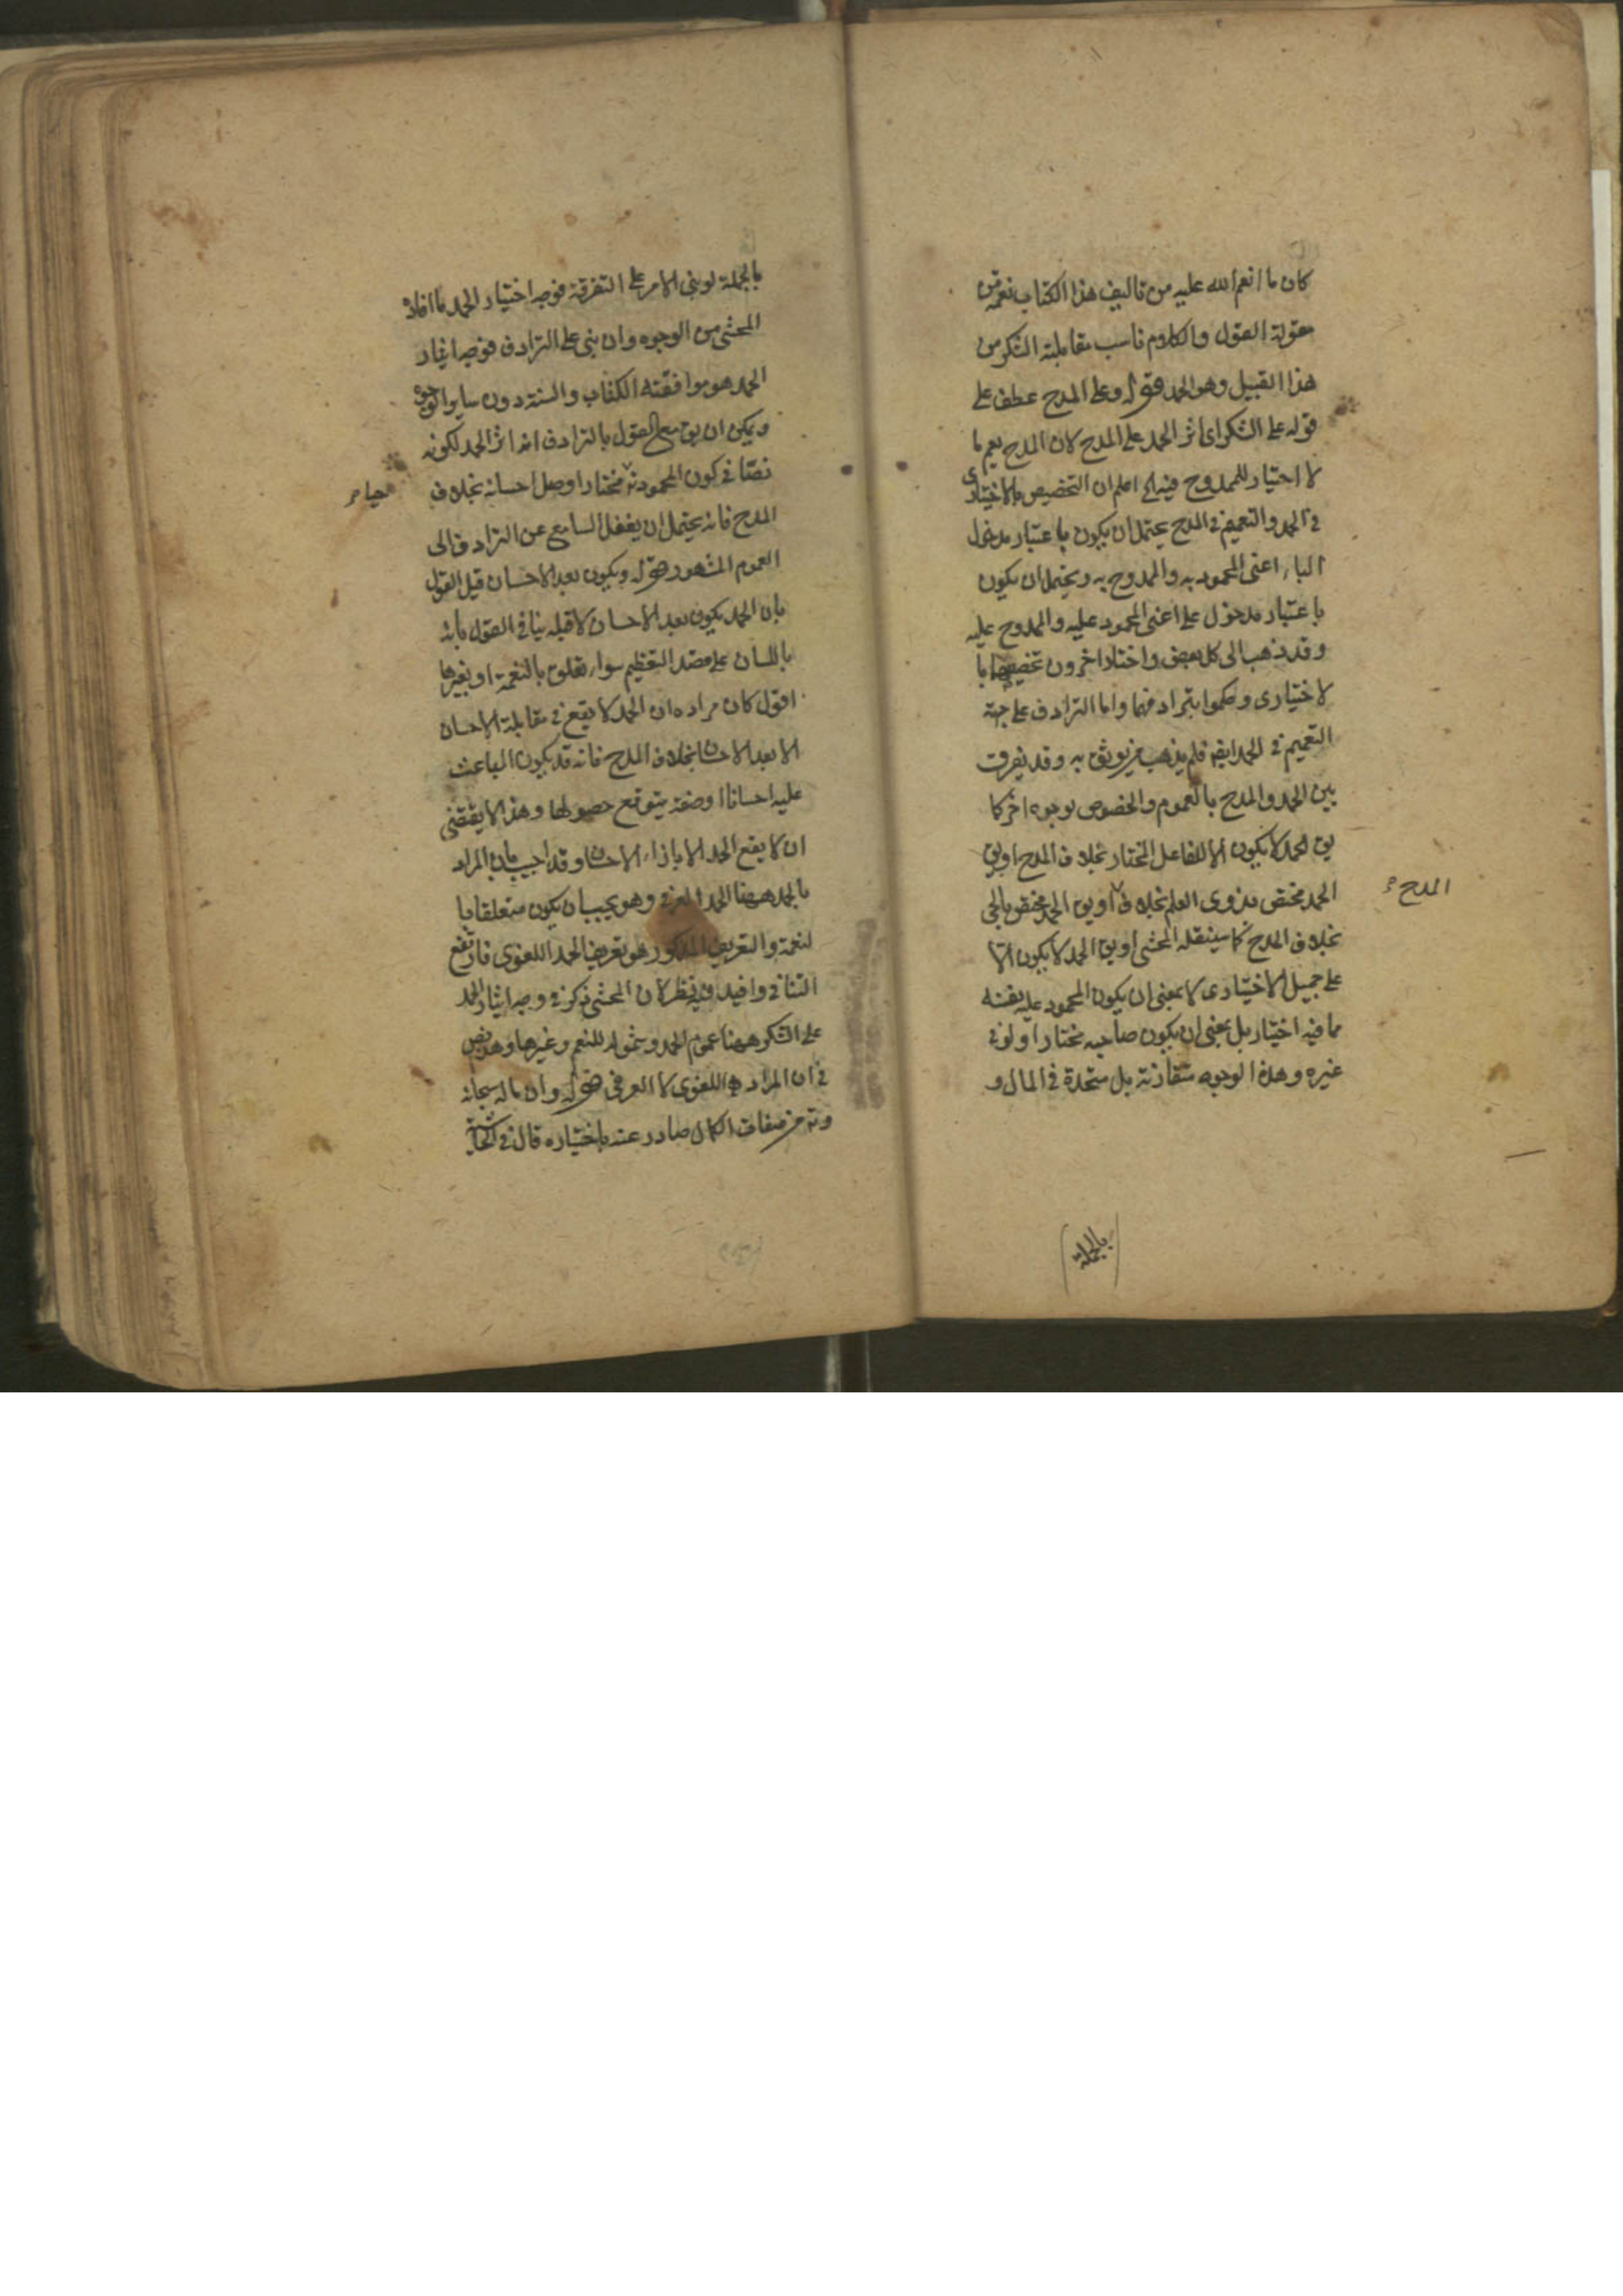 كان ما انعم الله عليه من تاليف هذا الكتاب نعمة من
مقولة القول والكلام ناسب مقابلته الشكر من
هذا القبيل وهو الحمد قوله وعلى المدح عطف على
قوله على الشكر اى اثر الحمد على المدح لان المدح يعم ما
لا اختيار للممدوح فيه الخ اعلم ان التخصيص بالاختيارى
فى الحمد والتعميم فى المدح يحتمل ان يكون باعتبار مدخول
الباء اعنى المحمود به والممدوح به ويحتمل ان يكون
باعتبار مدخول على اعنى المحمود عليه والممدوح عليه
وقد ذهب الى كل بعض واختار اخرون تخصيصهما با
لاختيارى وحكموا بترادفهما واما الترادف على جهة
التعميم فى الحمد ايضا فلم يذهب من يوثق به وقد يفرق
بين الحمد والمدح بالعموم والخصوص بوجوه اخر كما
يق الحمد لا يكون الا للفاعل المختار بخلاف المدح او يق
الحمد مختص بذوى العلم بخلاف او يق الحمد مختص بالحى
المدح
بخلاف المدح كما سينقله المحشى او يق الحمد لا يكون الا
على جميل الاختيارى لا بمعنى ان يكون المحمود عليه بنفسه
مما فيه اختيار بل بمعنى ان يكون صاحبه مختارا ولو فى
غيره وهذه الوجوه متقاربة بل متحدة فى المال و
بالجملة
بالجملة لو بنى الامر على التفرقة فوجه اختيار الحمد ما افاده
المحشى من الوجوه وان بنى على الترادف فوجه ايثار
الحمد هو موافقته الكتاب والسنة دون ساير الوجوه
ويمكن ان يق مع القول بالترادف انه اثر الحمد لكونه
نصا فى كون المحمود مختارا وصل احسانه بخلاف
المدح فانه يحتمل ان يغفل السامع عن الترادف الى
العموم المشهور قوله ويكون بعد الاحسان قيل القول
بان الحمد يكون بعد الاحسان لا قبله ينافى القول بانه
باللسان على قصد التعظيم سواء تعلق بالنعمة او بغيرها
اقول كان مراده ان الحمد لا يقع فى مقابلة الاحسان
الا بعد الاحسان بخلاف المدح فانه قد يكون الباعث
عليه احسانا او صفة يتوقع حصولها وهذا لا يقتضى
ان لا يقع الحمد الا بازاء الاحسان وقد اجيب بان المراد
بالحمد ههنا الحمد العرفى وهو يجب ان يكون متعلقا با
لنعمة والتعريف المذكور هو تعريف الحمد اللغوى فارتفع
التنافى وافيد فيه نظر لان المحشى ذكر فى وجه ايثار الحمد
على الشكر ههنا عموم الحمد وشموله للنعم وغيرها وهذا نص
فى ان المراد هو اللغوى لا العرفى قوله وان ماله سبحانه
وتع من صفات الكمال صادر عنه باختياره قال فى الحاشية